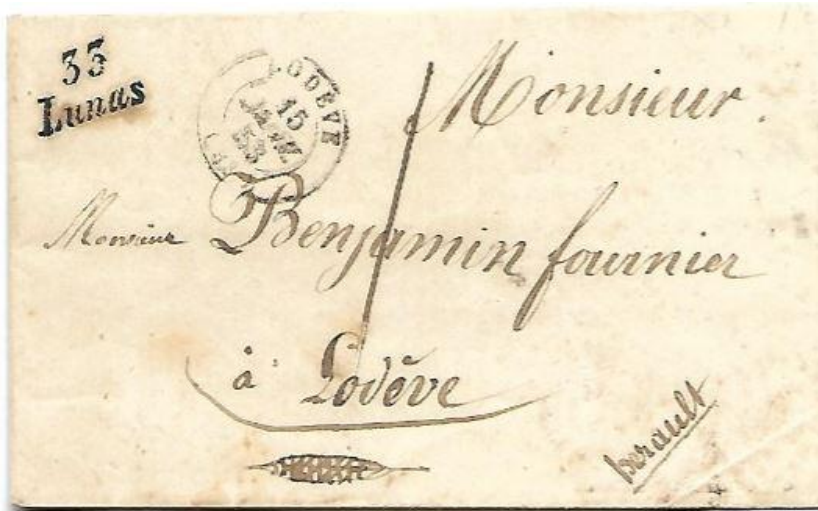 33
Lunas
LODÈVE
15
JANV.
53
Monsieur.
Monsieur Benjamin fournier
à Lodève
herault